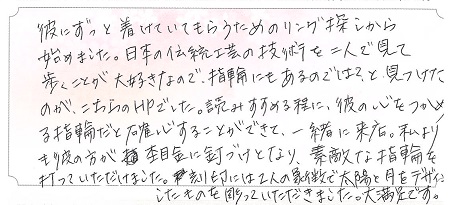 彼にずっと着けていてもらうためのリング探しから
始めました。日本の伝統工芸の技術を二人で見て
歩くことが大好きなので、指輪にもあるのでは?と、見つけた
のが、こちらのHPでした。読みすすめる程に、彼の心をつかめ
る指輪だと確信することができて、一緒に来店。私より
も彼の方が杢目金に釘づけとなり、素敵な指輪を
打っていただけました。刻印には2人の象徴で太陽と月をデザイン
したものを彫っていただきました。大満足です。